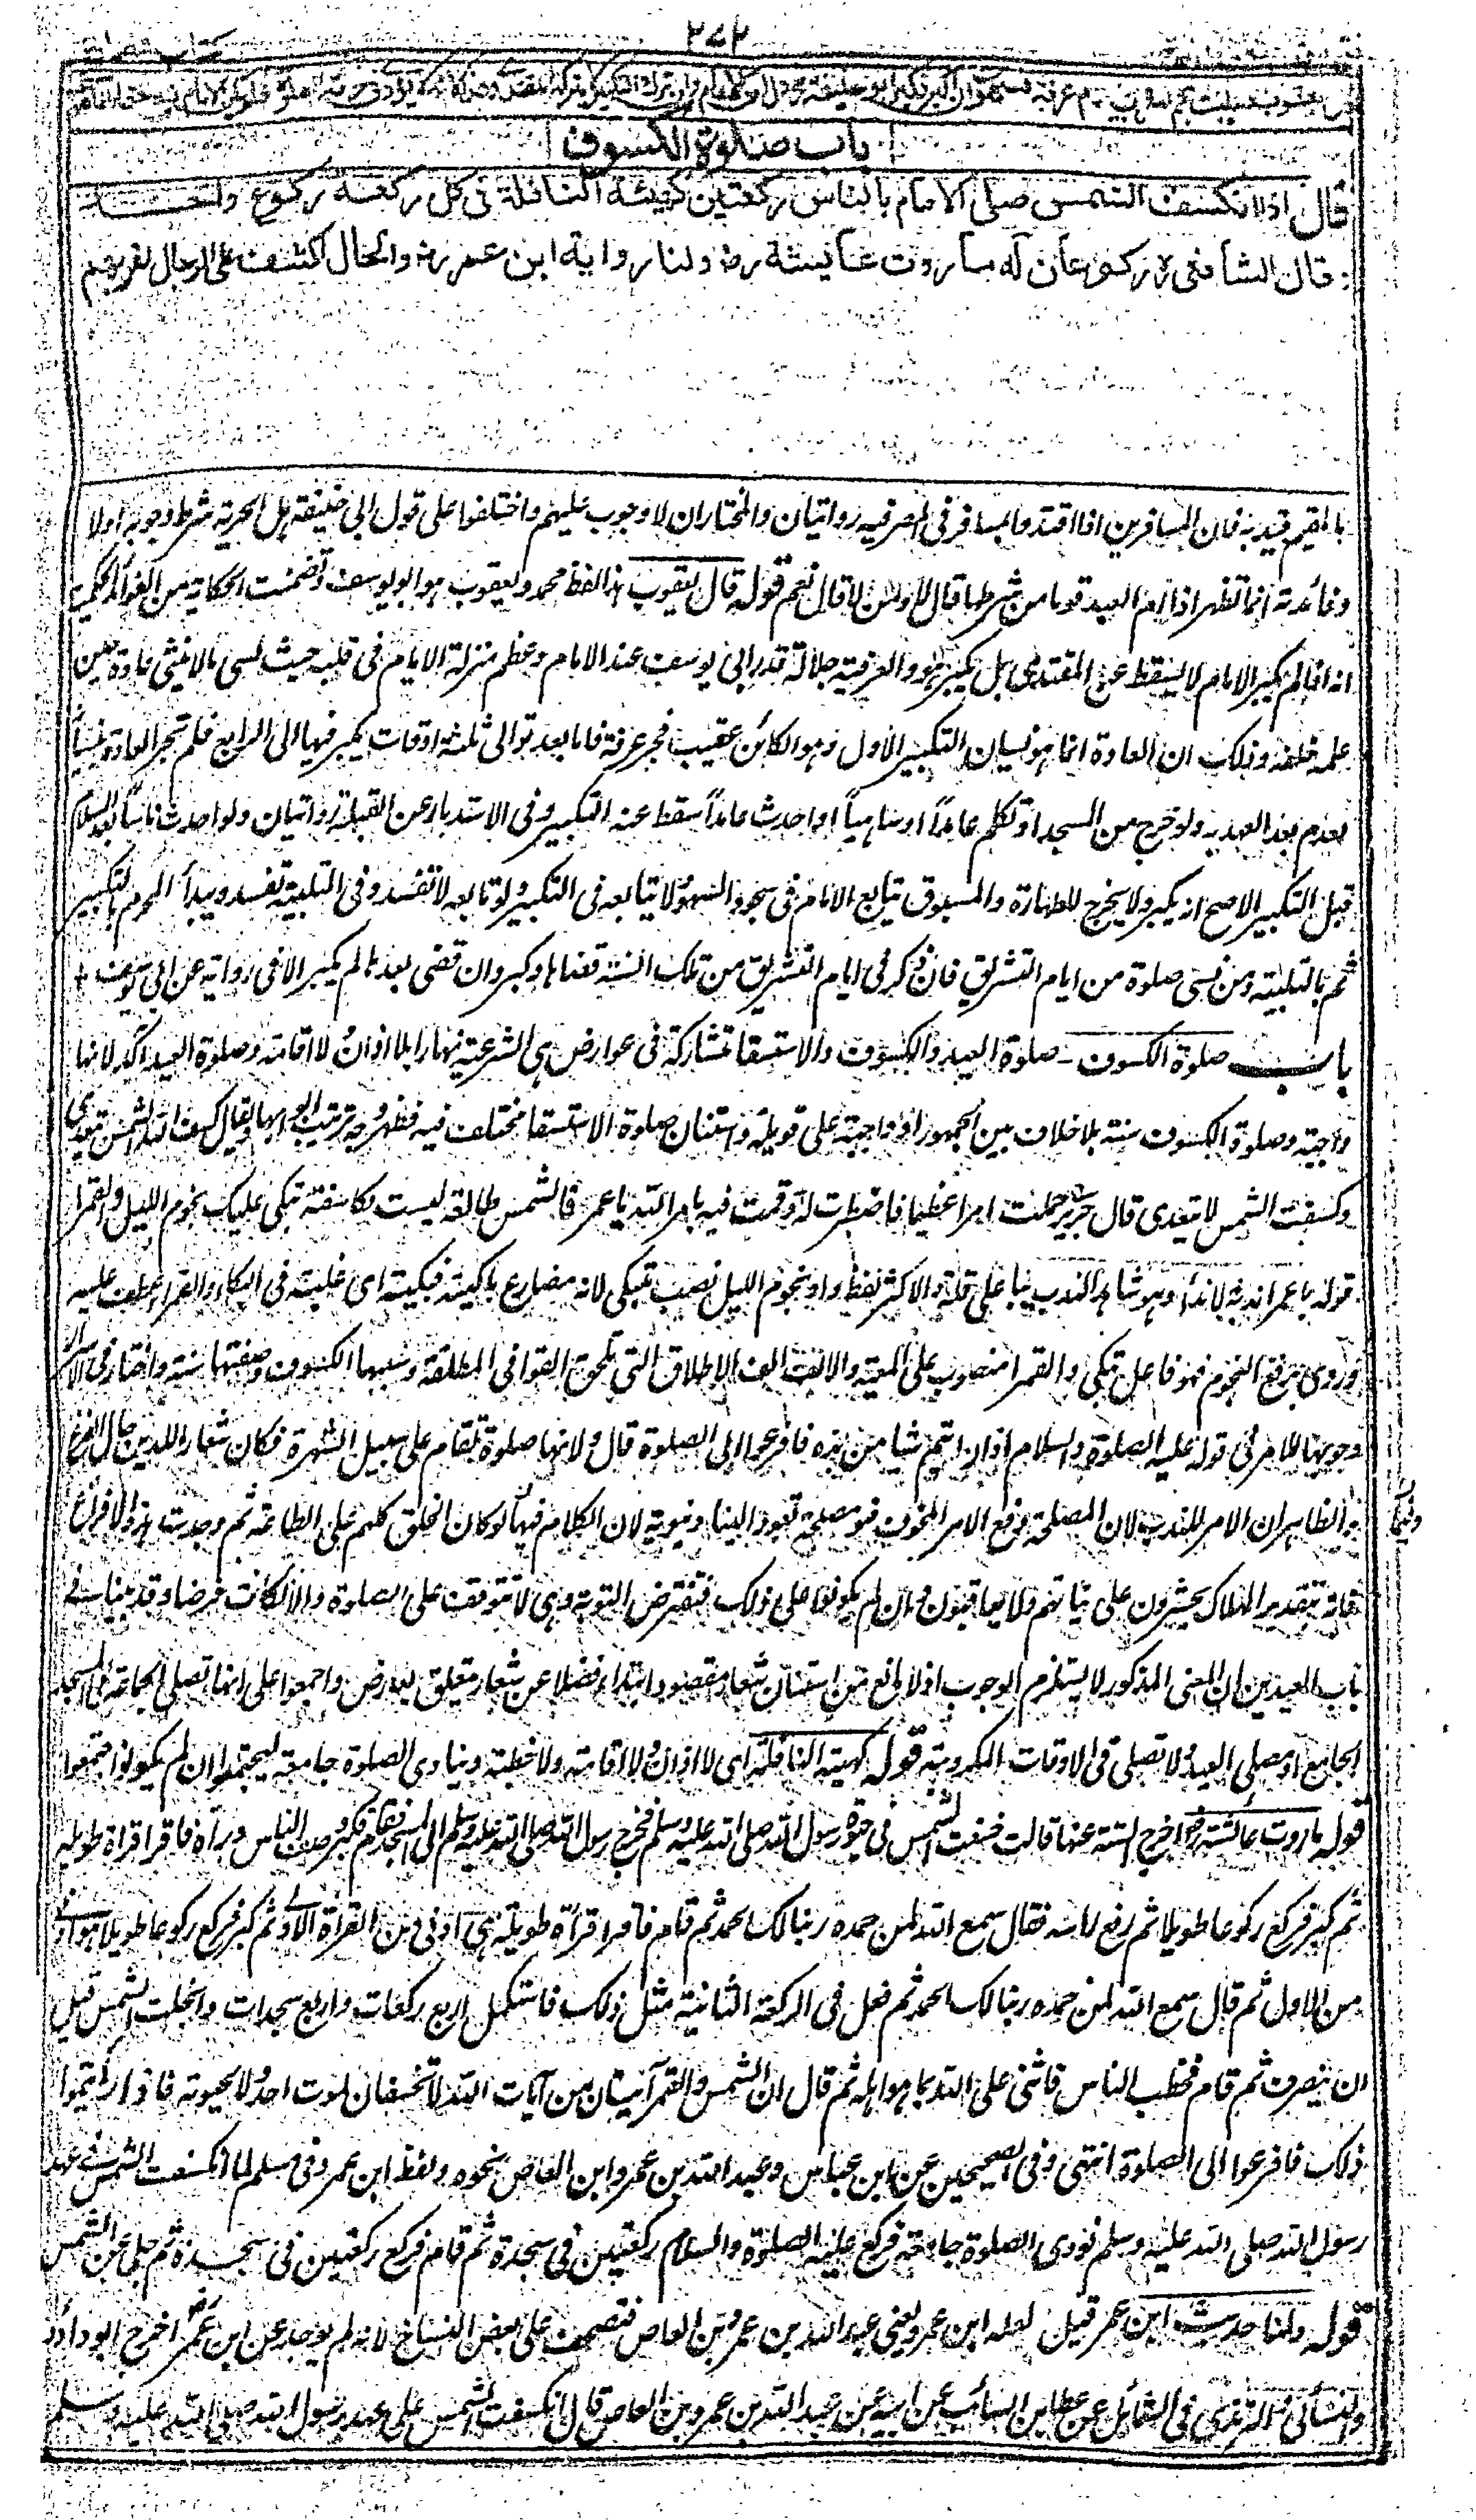 ٢٧٢
باب صلوة الكسوف
قال اذا انكسف الشمس صلى الامام بالناس ركعتين كهيئة النافلة فى كل ركعة ركوع واحد
قال الشافعى ركوعان له ما روت عائيشة رض ولنا رواية ابن عمر رض والحال اكشف على الرجال لقربهم
بالمقيم قيد به فان المسافرين اذا اقتدوا بالمسافر فى المصر فيه روايتان والمختار ان لا وجوب عليهم واختلفوا على قول ابى حنيفة هل الحرية شرط وجوبه اولا
وفائدته انما تظهر اذا ام العبد قوما من شرطها قال لا ومن لا قال نعم قوله قال يعقوب هذا لفظ محمد ويعقوب هو ابو يوسف وتضمنت الحكاية من الفوائد الحكمية
انه اذا لم يكبر الامام لا يسقط عن المقتدى بل يكبر هو والعرفية جلالة قدر ابى يوسف عند الامام وعظم منزلة الامام فى قلبه حيث نسى ما لا ينسى عادة حين
علمه خلفه وذلك ان العادة انما هو نسيان التكبير الاول وهو الكائن عقيب فجر عرفة فاما بعد توالى ثلثة اوقات يكبر فيها الى الرابع فلم تجر العادة بنسيانه
لعدم بعد العهد به ولو خرج من المسجد او تكلم عامداً او ساهياً او احدث عامداً سقط عنه التكبير وفى الاستدبار عن القبلة روايتان ولو احدث ناسياً بعد السلام
قبل التكبير الاصح انه يكبر ولا يخرج للطهارة والمسبوق يتابع الامام فى سجود السهو ولا يتابعه فى التكبير ولو تابعه لا تفسد وفى التلبية تفسد ويبدأ المحرم بالتكبير
ثم بالتلبية ومن نسى صلوة من ايام التشريق فان ذكر فى ايام التشريق من تلك السنة قضاها وكبر وان قضى بعدها لم يكبر الا فى رواية عن ابى يوسف
باب صلوة الكسوف صلوة العيد والكسوف والاستسقا متشاركة فى عوارض هى الشرعية نهارا بلا اذان ولا اقامة وصلوة العيد اكد لانها
واجبة وصلوة الكسوف سنة بلا خلاف بين الجمهور او واجبة على قويلة واستنان صلوة الاستسقا مختلف فيه فظهر وجه ترتيب ابوابها ويقال كسف الله الشمس يتعدى
وكسفت الشمس لا يتعدى قال جرير حملت امرا عظيما فاضطبرت له وقمت فيه بامر الله يا عمر فالشمس طالعة ليست بكاسفة تبكى عليك نجوم الليل والقمرا
قوله يا عمرا ندبة لا نداء وهو شاهد الندب بيا على قلة والاكثر لفظ وا ونجوم الليل نصب بتبكى لانه مضارع باكيته فبكيته اى غلبته فى البكاء والقمر اعطف عليه
وروى برفع النجوم فهو فاعل تبكى والقمر امنصوب على المعية والالف الف الاطلاق التى تلحق القوافى المطلقة وسببها الكسوف وصفتها سنة واختار فى الاسرار
وجوبها للامر فى قوله عليه الصلوة والسلام اذا رايتم شيا من هذه فافزعوا الى الصلوة قال ولانها صلوة تقام على سبيل الشهرة فكان شعار اللدين حال الفزع
والظاهر ان الامر للندب لان المصلحة دفع الامر المخوف فهو مصلحة تعود الينا دنيوية لان الكلام فيما لو كان الخلق كلهم على الطاعة ثم وجدت هذه الافزاع
فانه بتقدير الهلاك يحشرون على نياتهم ولا يعاقبون وان لم يكونوا على ذلك فتفترض التوبة وهى لا تتوقف على الصلوة والا لكانت فرضا وقد بينا فى
باب العيدين ان المعنى المذكور لا يستلزم الوجوب اذ لا مانع من استنان شعار مقصود ابتداء فضلا عن شعار متعلق بعارض واجمعوا على انها تصلى بجماعة فى المسجد
الجامع او مصلى العيد ولا تصلى فى الاوقات المكروهة قوله كهيئة النافلة اى لا اذان ولا اقامة ولا خطبة وينادى الصلوة جامعة ليجتمعوا ان لم يكونوا اجتمعوا
قوله ما روت عائشة رض اخرج الستة عنها قالت خسفت الشمس فى حيوة رسول الله صلى الله عليه وسلم فخرج رسول الله صلى الله عليه وسلم الى المسجد فقام فكبر وصف الناس وراه فاقرا قراة طويلة
ثم كبر فركع ركوعا طويلا ثم رفع راسه فقال سمع الله لمن حمده ربنا لك الحمد ثم قام فاقرا قراة طويلة هى ادنى من القراة الاولى ثم كبر فركع ركوعا طويلا هو ادنى
من الاول ثم قال سمع الله لمن حمده ربنا لك الحمد ثم فعل فى الركعة الثانية مثل ذلك فاستكمل اربع ركعات واربع سجدات وانجلت الشمس قبل
ان ينصرف ثم قام فخطب الناس فاثنى على الله بما هو اهله ثم قال ان الشمس والقمر آيتان من آيات الله لا تخسفان لموت احد ولا لحيوته فاذا رايتموا
ذلك فافزعوا الى الصلوة انتهى وفى الصحيحين عن ابن عباس وعبد الله بن عمرو ابن العاص نحوه ولفظ ابن عمرو فى مسلم لما انكسفت الشمس فى عهد
رسول الله صلى الله عليه وسلم نودى الصلوة جامعة فركع عليه الصلوة والسلام ركعتين فى سجدة ثم قام فركع ركعتين فى سجدة ثم جلى عن الشمس
قوله ولنا حديث ابن عمر قيل لعله ابن عمرو يعنى عبد الله بن عمرو بن العاص فتصحف على بعض النساخ لانه لم يوجد عن ابن عمر اخرج ابو داؤد
والنسائى والترمذى فى الشمائل عن عطا بن السائب عن ابيه عن عبد الله بن عمرو بن العاص قال انكسفت الشمس على عهد رسول الله صلى الله عليه وسلم